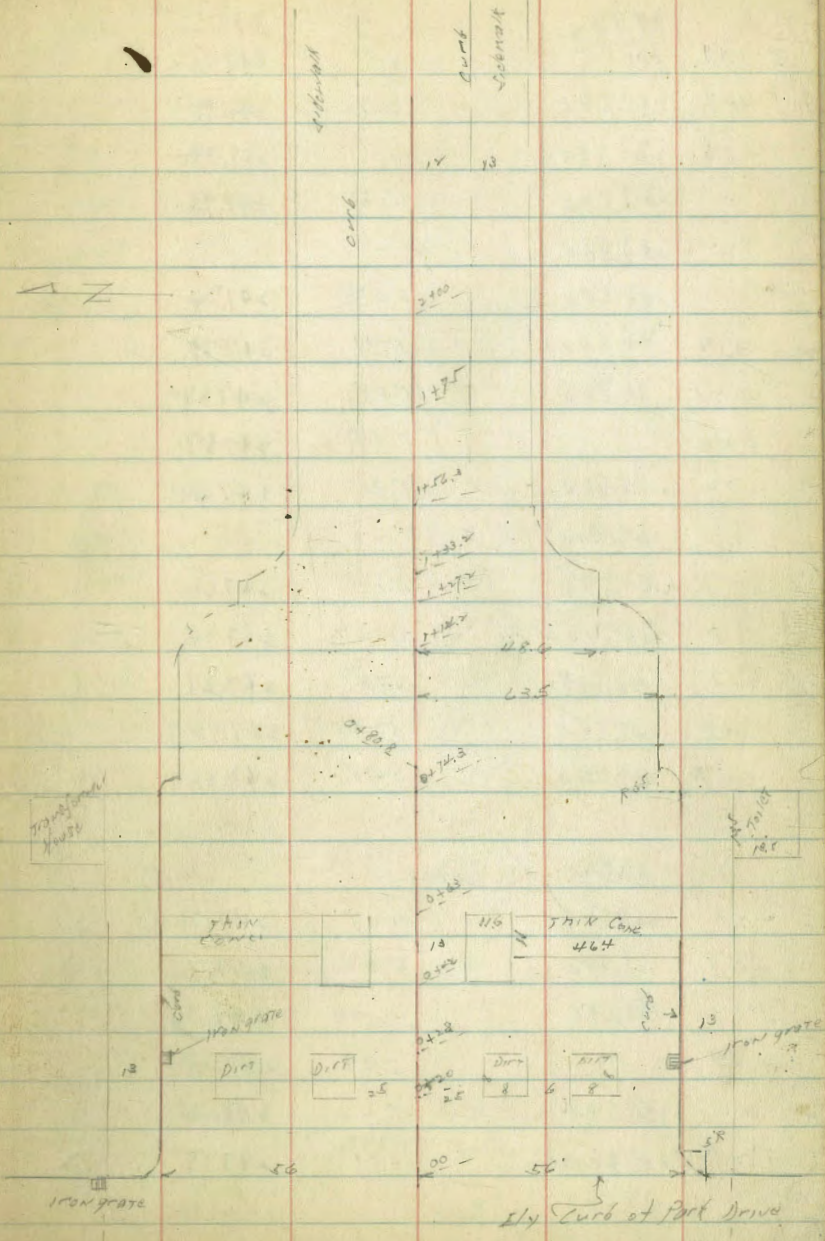 Sidewalk
Curb
Sidewalk
Curb
12 13
N
2+00
1+75
1+56.8
1+33.2
1+27.2
48.6
63.5
0+80.8
0+74.3
Transformer
House
Toilet
19.5
0+63
Thin
Conc.
11.6
Thin Conc.
46.4
13
Curb
Curb
Iron grate
13
13
Iron grate
0+28
Dirt
Dirt
25
0+20
25
Dirt
8
6
Dirt
8
5'R
56
00
56
Iron grate
Ely Curb of Park Drive